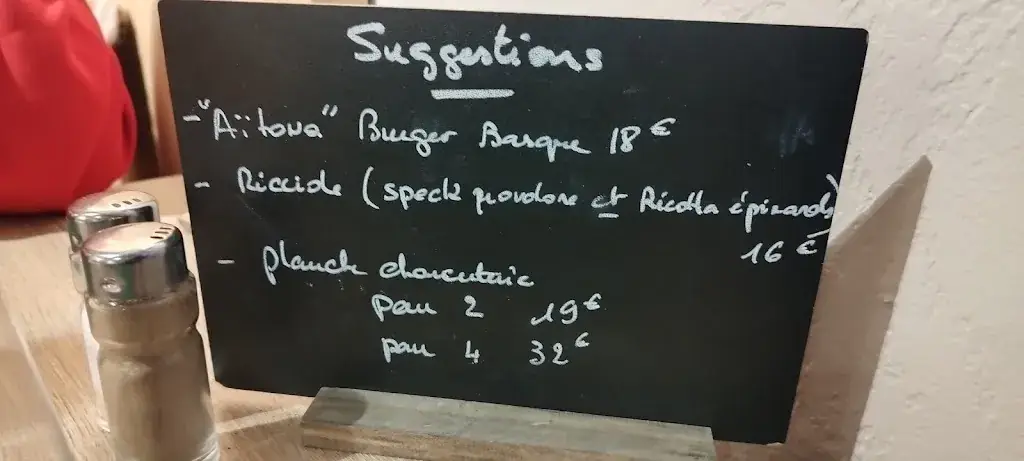 Suggestions
- "Aïtona" Burger Basque 18€
- Ricciole (speck provolone et Ricotta épinards)
16€
- planche charcuterie
pour 2 19€
pour 4 32€